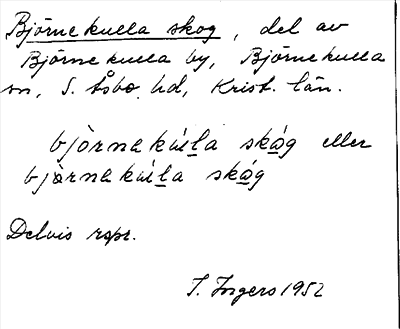 Björnekulla skog, del av
Björnekulla by, Björnekulla
sn, S. Åsbo hd, Krist. län.
björnakúl̲a skó̲g eller
björnakúl̲a skó̲g
Delvis rspr.
I. Ingers 1952